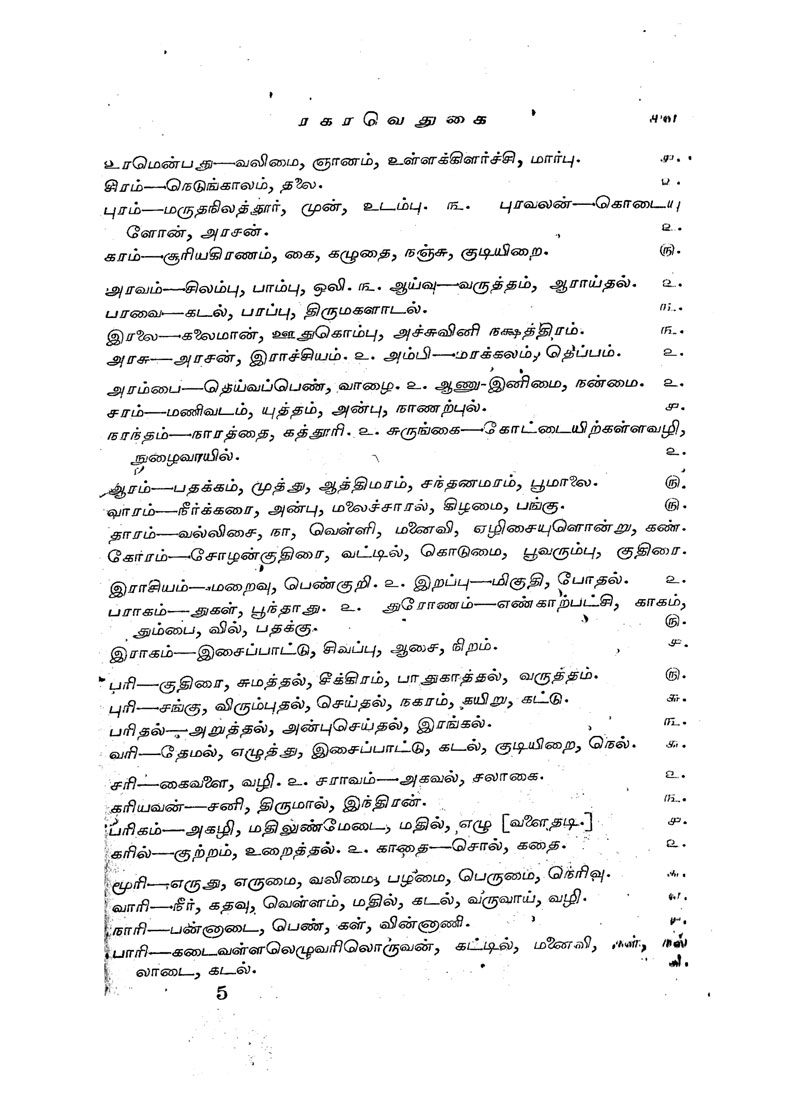 ரகரவெதுகை
உரமென்பது—வலிமை, ஞானம், உள்ளக்கிளர்ச்சி, மார்பு. ௪.
சிரம்—நெடுங்காலம், தலை. ௨.
புரம்—மருதநிலத்தூர், முன், உடம்பு. ௩. புரவலன்—கொடையு
ளோன், அரசன். ௨.
கரம்—சூரியகிரணம், கை, கழுதை, நஞ்சு, குடியிறை. ௫.
அரவம்—சிலம்பு, பாம்பு, ஒலி. ௩. ஆய்வு—வருத்தம், ஆராய்தல். ௨.
பரவை—கடல், பரப்பு, திருமகளாடல். ௩.
இரலை—கலைமான், ஊதுகொம்பு, அச்சுவினி நக்ஷத்திரம். ௩.
அரசு—அரசன், இராச்சியம். ௨. அம்பி—மரக்கலம், தெப்பம். ௨.
அரம்பை—தெய்வப்பெண், வாழை. ௨. ஆணு-இனிமை, நன்மை. ௨.
சரம்—மணிவடம், யுத்தம், அன்பு, நாணற்புல். ௪.
நரந்தம்—நாரத்தை, கத்தூரி. ௨. சுருங்கை—கோட்டையிற்கள்ளவழி,
நுழைவாயில். ௨.
ஆரம்—பதக்கம், முத்து, ஆத்திமரம், சந்தனமரம், பூமாலை. ௫.
வாரம்—நீர்க்கரை, அன்பு, மலைச்சாரல், கிழமை, பங்கு. ௫.
தாரம்—வல்லிசை, நா, வெள்ளி, மனைவி, ஏழிசையுளொன்று, கண்.
கோரம்—சோழன்குதிரை, வட்டில், கொடுமை, பூவரும்பு, குதிரை.
இராசியம்—மறைவு, பெண்குறி. ௨. இறப்பு—மிகுதி, போதல். ௨.
பராகம்—துகள், பூந்தாது. ௨. துரோணம்—எண்காற்பட்சி, காகம்,
தும்பை, வில், பதக்கு. ௫.
இராகம்—இசைப்பாட்டு, சிவப்பு, ஆசை, நிறம். ௪.
பரி—குதிரை, சுமத்தல், சீக்கிரம், பாதுகாத்தல், வருத்தம். ௫.
புரி—சங்கு, விரும்புதல், செய்தல், நகரம், கயிறு, கட்டு. ௬.
பரிதல்—அறுத்தல், அன்புசெய்தல், இரங்கல். ௩.
வரி—தேமல், எழுத்து, இசைப்பாட்டு, கடல், குடியிறை, நெல். ௬.
சரி—கைவளை, வழி. ௨. சராவம்—அகவல், சலாகை. ௨.
கரியவன்—சனி, திருமால், இந்திரன். ௩.
பரிகம்—அகழி, மதிலுண்மேடை, மதில், எழு [வளைதடி.] ௪.
கரில்—குற்றம், உறைத்தல். ௨. காதை—சொல், கதை. ௨.
மூரி—எருது, எருமை, வலிமை, பழமை, பெருமை, நெரிவு. ௬.
வாரி—நீர், கதவு, வெள்ளம், மதில், கடல், வருவாய், வழி. ௭.
நாரி—பன்னாடை, பெண், கள், வின்னாணி. ௪.
பாரி—கடைவள்ளலெழுவரிலொருவன், கட்டில், மனைவி, கள், நல்
லாடை, கடல். ௬.
5